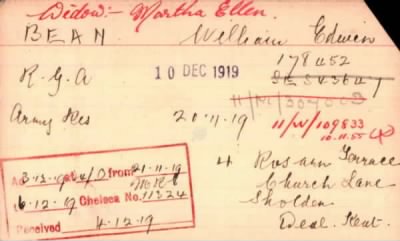 Widow:- Martha Ellen.
BEAN William Edwin
178452
R.G.A 10 DEC 1919
Army Res 20-11-19 11/W/109833
10.11.55
4 Rosarn Terrace
Church Lane
Sholden
Deal. Kent.
from 21-11-19
16-12-19 Chelsea No. 11324
Received 4-12-19